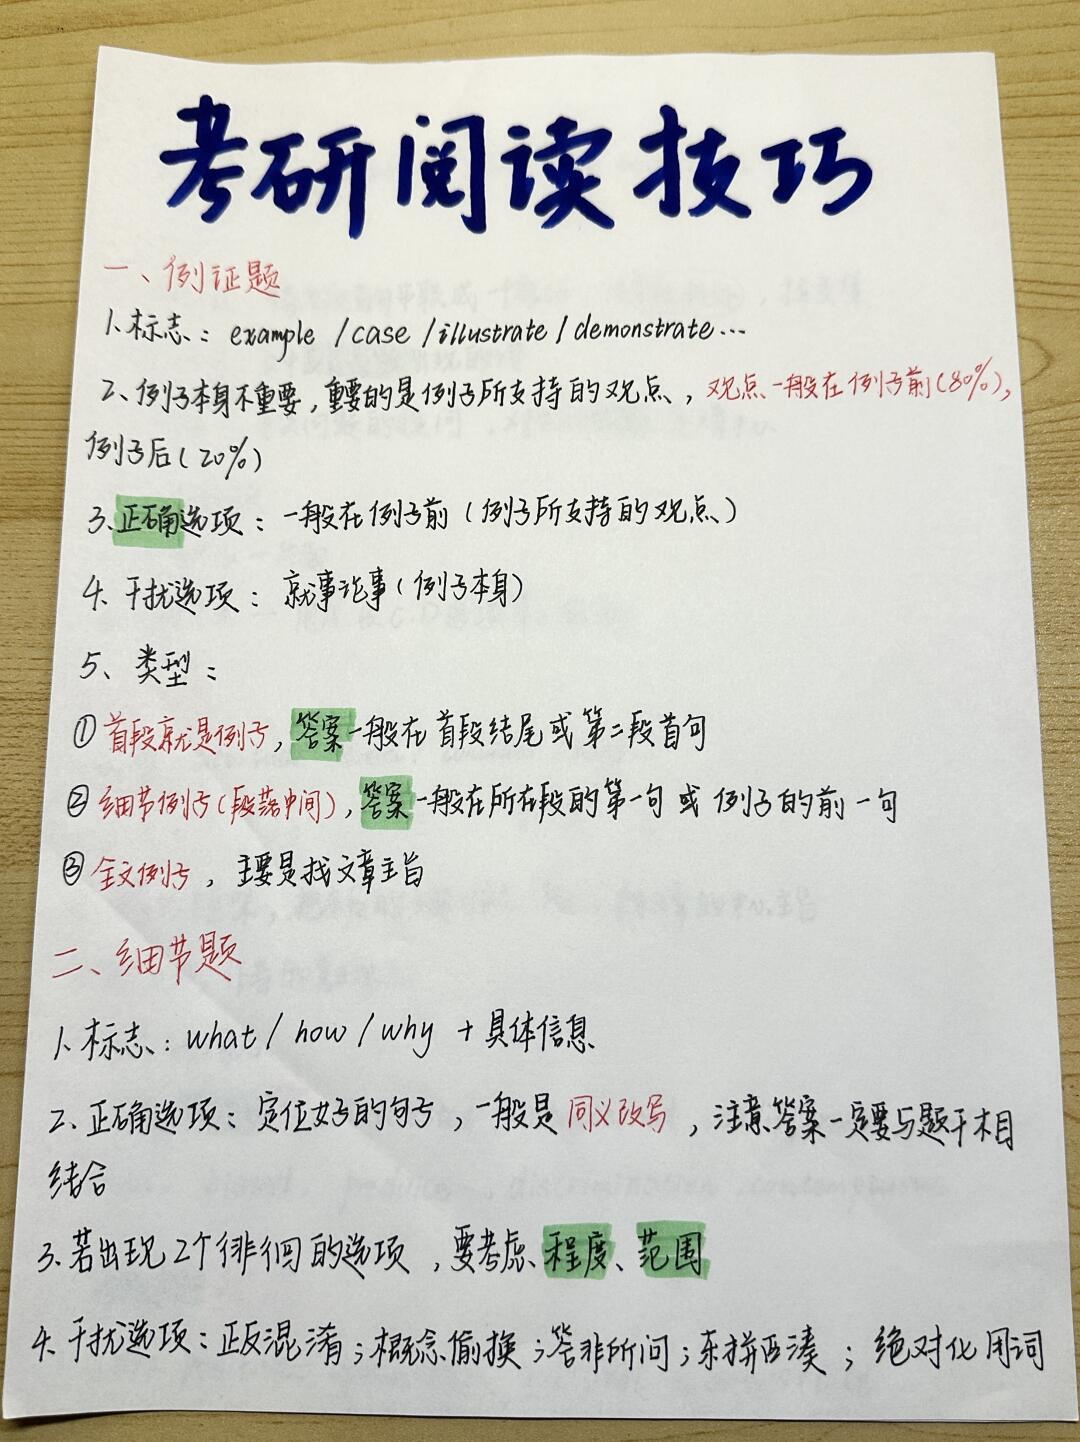 考研阅读技巧
一、例证题
1.标志：example /case /illustrate/demonstrate...
2、例子本身不重要，重要的是例子所支持的观点，观点一般在例子前(80%),
例子后(20%)
3.正确选项：一般在例子前(例子所支持的观点)
4.干扰选项：就事论事(例子本身)
5、类型：
①首段就是例子，答案一般在首段结尾或第二段首句
②细节例子(段落中间)，答案一般在所在段的第一句或例子的前一句
③全文例子，主要是找文章主旨
二、细节题
1.标志：what / how / why + 具体信息
2.正确选项：定位好的句子，一般是同义改写，注意答案一定要与题干相
结合
3.若出现2个徘徊的选项，要考虑程度、范围
4.干扰选项：正反混淆；概念偷换；答非所问；东拼西凑；绝对化用词